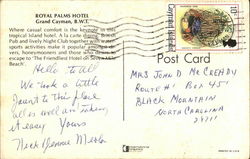 ROYAL PALMS HOTEL
Grand Cayman, B.W.I.
Where casual comfort is the keynote in this
tropical Island hotel. A la carte dining, British
Pub and lively Night Club together with water
sports activities make it popular amongst divers,
honeymooners and those who desire to
escape to "The Friendliest Hotel on Seven Mile
Beach".
Hello to all
We took a little
jaunt to this place
it easy. Yours
Post Card
Mrs John D McCready
Route #1 Box 451
Black Mountain
North Carolina
28711